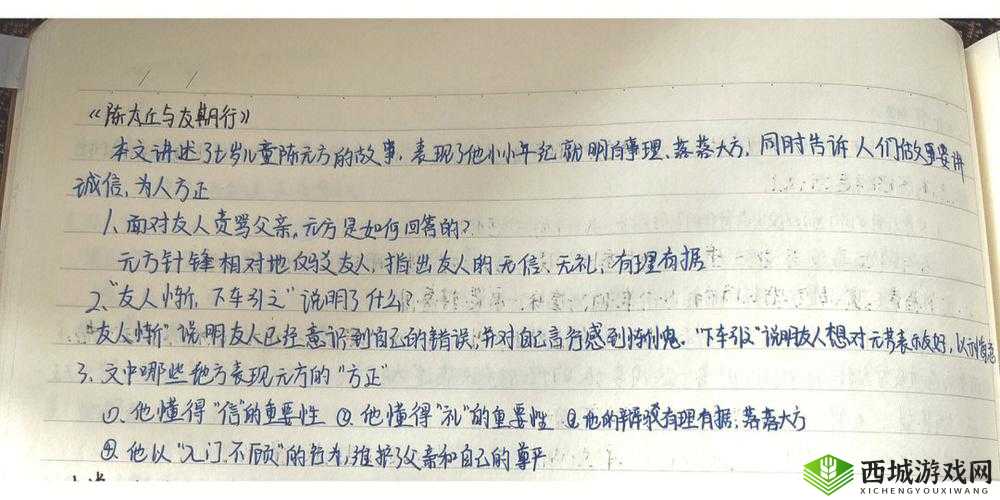 《陈太丘与友期行》
本文讲述了七岁儿童陈元方的故事,表现了他小小年纪就明白事理、落落大方,同时告诉人们做事要讲
诚信,为人方正
1、面对友人责骂父亲,元方是如何回答的?
元方针锋相对地反驳友人,指出友人的无信、无礼,有理有据
2、"友人惭,下车引之"说明了什么?
"友人惭"说明友人已经意识到自己的错误,并对自己言行感到惭愧."下车引之"说明友人想对元方表示友好,以示
3、文中哪些地方表现元方的"方正"
①、他懂得"信"的重要性 ②、他懂得"礼"的重要性 ③他的辩驳有理有据、落落大方
④他以"入门不顾"的行为,维护了父亲和自己的尊严
西城游戏网
XICHENGYOUXIWANG